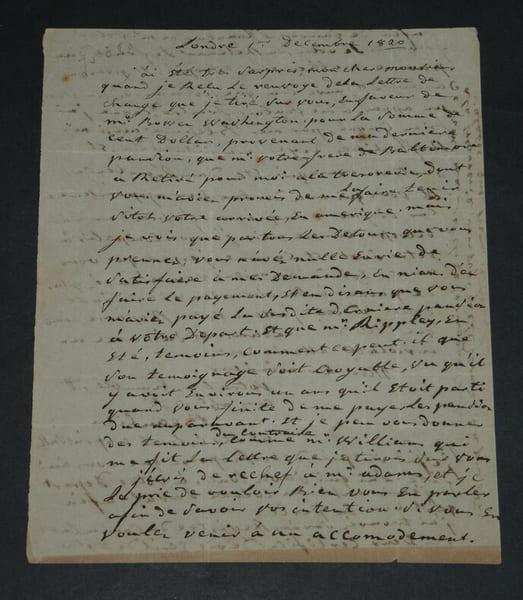 Londre 1er Decembre 1820
j'ai été tres Surpris, mon cher monsieur
quand je Recu Le renvoye de La Lettre de
change que je tiré Sur vous, En faveur de
mr Bowen Washington, pour La Somme de
Cent Dollars, provenant de ma derniere
pansion, que mr votre frere de Baltimore
a Retiré pour moi a La tresorerie, dont
vous m'aviez promis de me La faire tenir
Sitot votre arrivée, En amerique. mais
je vois que par tous Les Detours que vous
prennez, vous n'avez nulle Envie de
Satisfaire à mes Demandes, En niant d'en
faire Le payement, Et en disant que vous
m'aviez payé La Susdite derniere pansion
à votre Depart. Et que mr Rippley, En
Eté, temoins, Comment ce peut-il que
Son temoignage Soit Croyable, vu qu'il
y avoit Environs un ans qu'il Etoit parti
quand vous finite de me payer Les pansion
Due auparavant. Et je peu vous donner
des temoins du Contraire, Comme mr William qui
me fit La Lettre que je tirois Sur vous
j'écris de rechef à mr adams, et je
La prie de vouloir Bien vous En parler
afin de Savoir vos intention Si vous En
voulez venir à un accomodement.